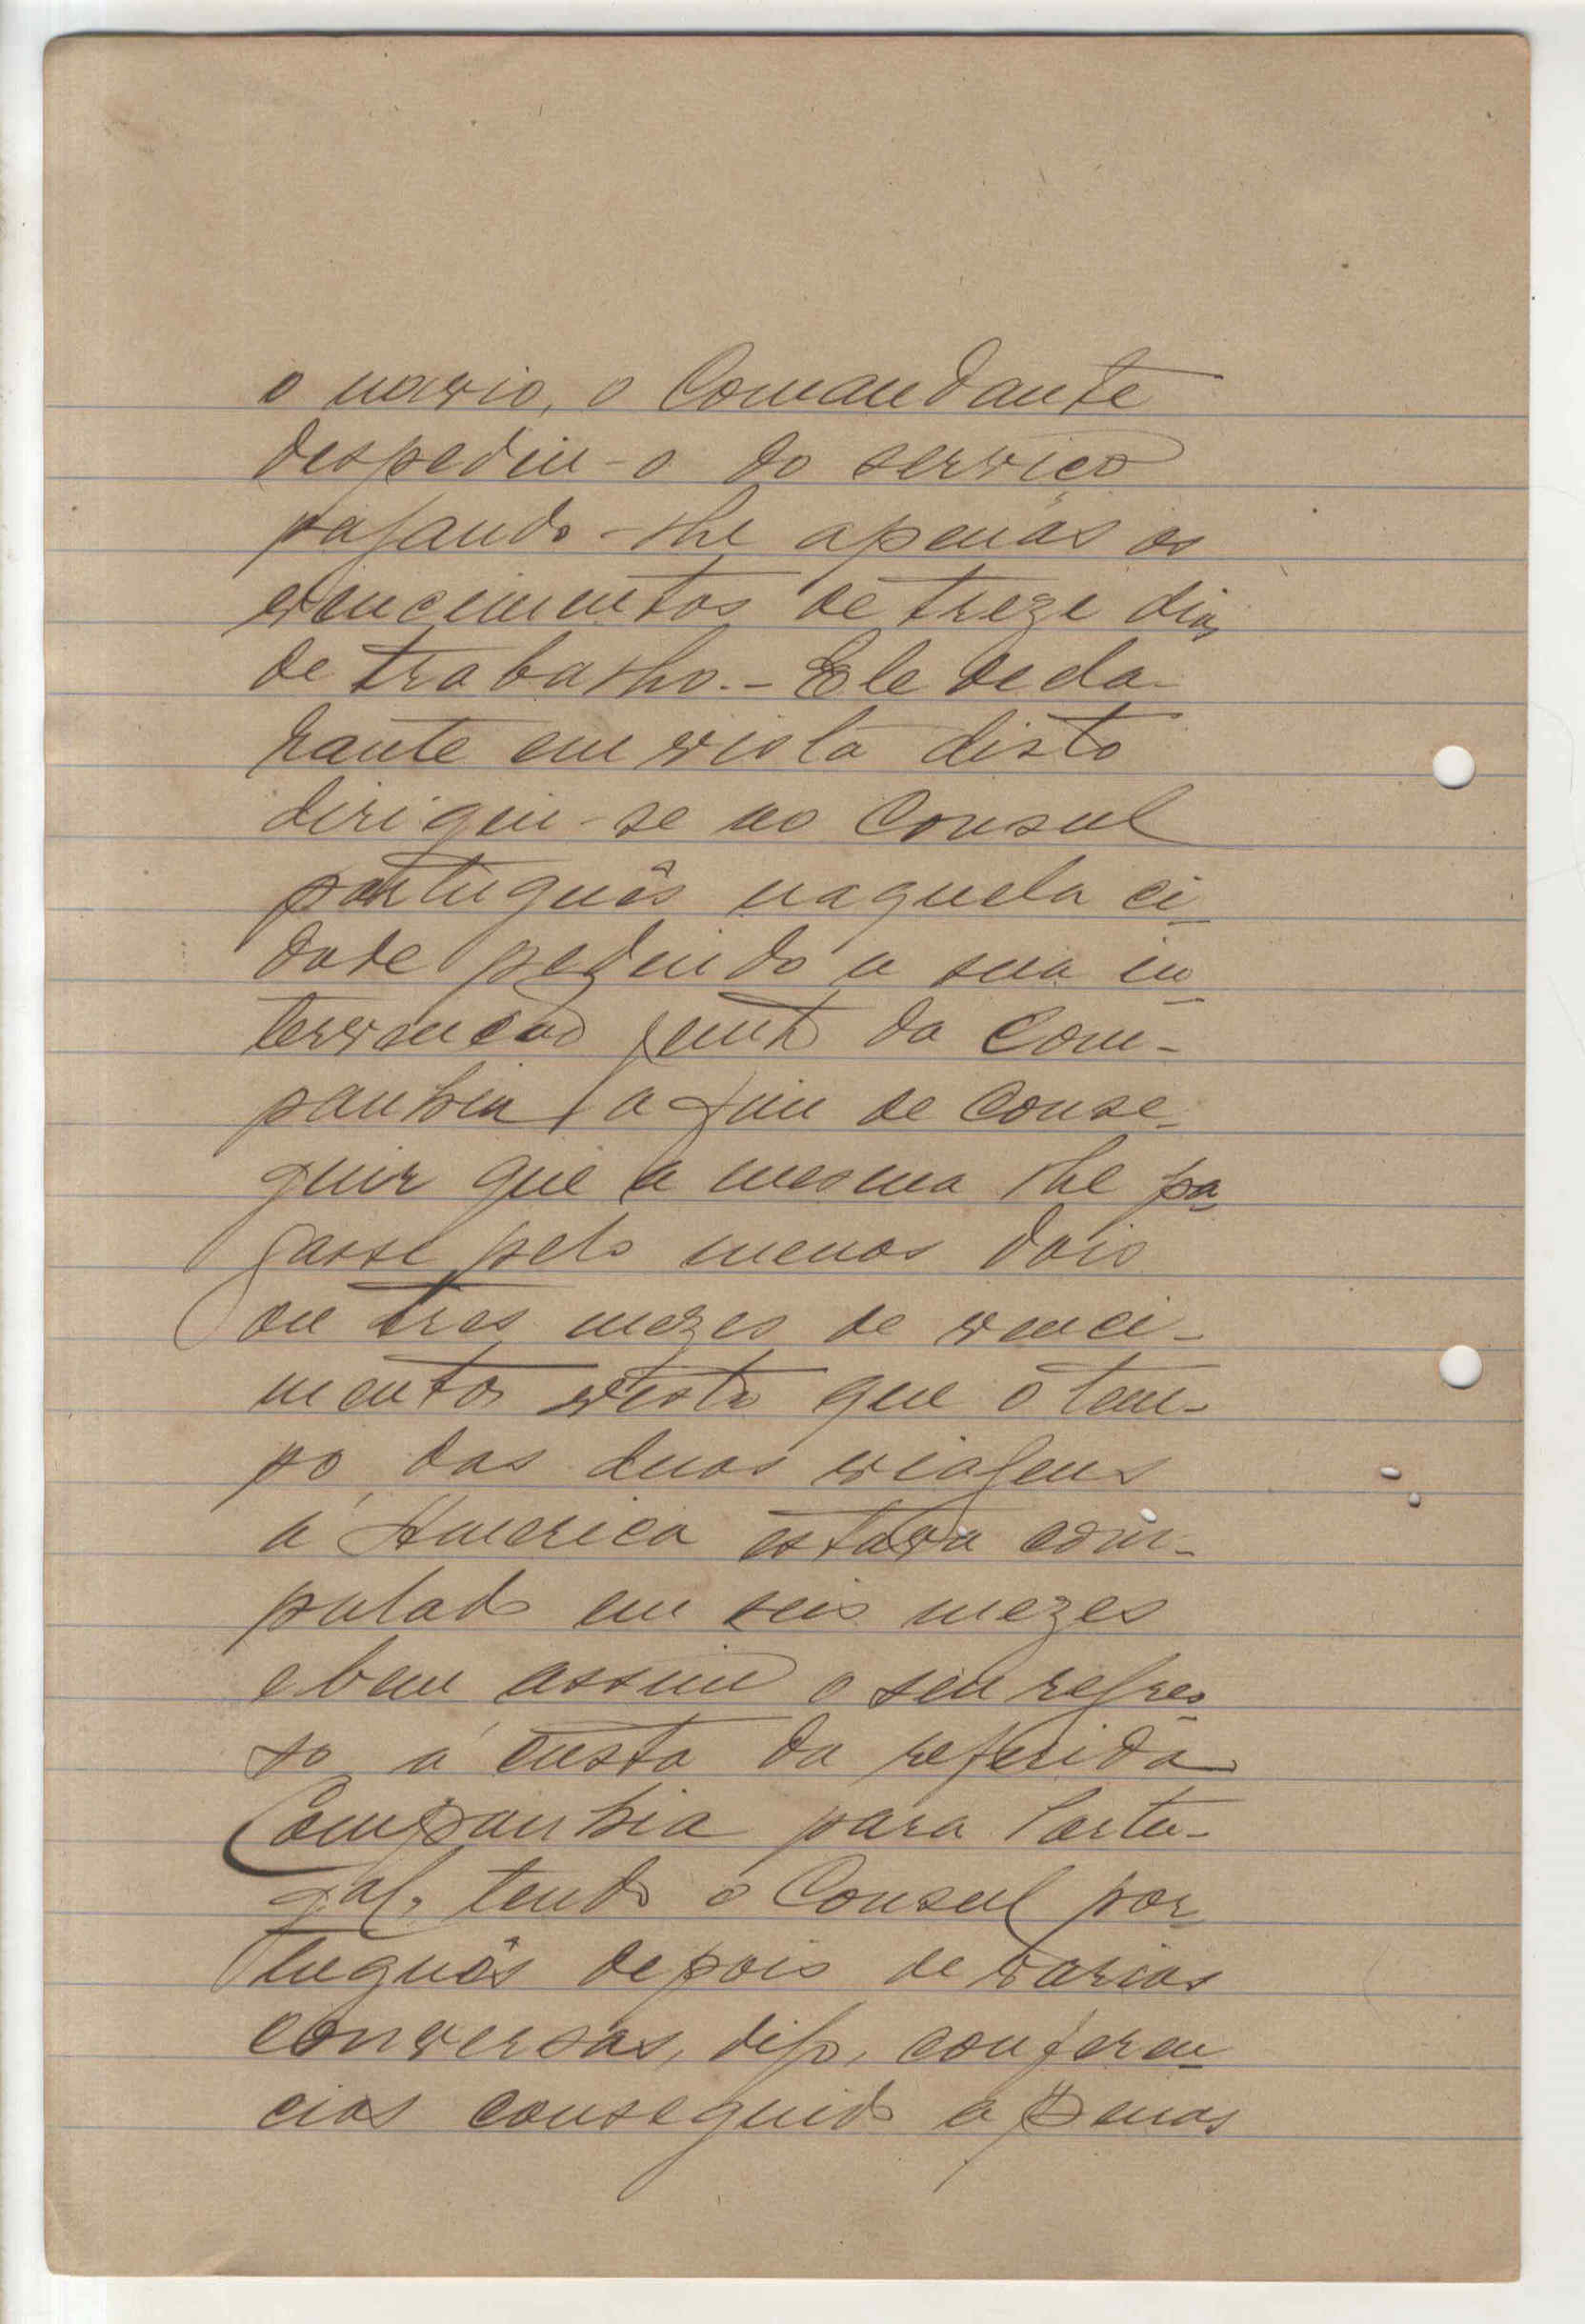 o navio, o Comandante
despediu-o do serviço
pagando-lhe apenas os
vencimentos de treze dias
de trabalho.- Ele decla-
rante em vista disto
dirigiu-se ao Consul
português naquela ci-
dade pedindo a sua in-
tervenção junto da Com-
panhia a fim de conse-
guir que a mesma lhe pa-
gasse pelo menos dois
ou tres mezes de venci-
mentos visto que o tem-
po das duas viagens
á America estava com-
putado em seis mezes
e bem assim o seu regres-
so á custa da referida
Companhia para Portu-
gal, tendo o Consul por-
tuguês depois de varias
conversas, digo, conferen-
cias conseguido apenas